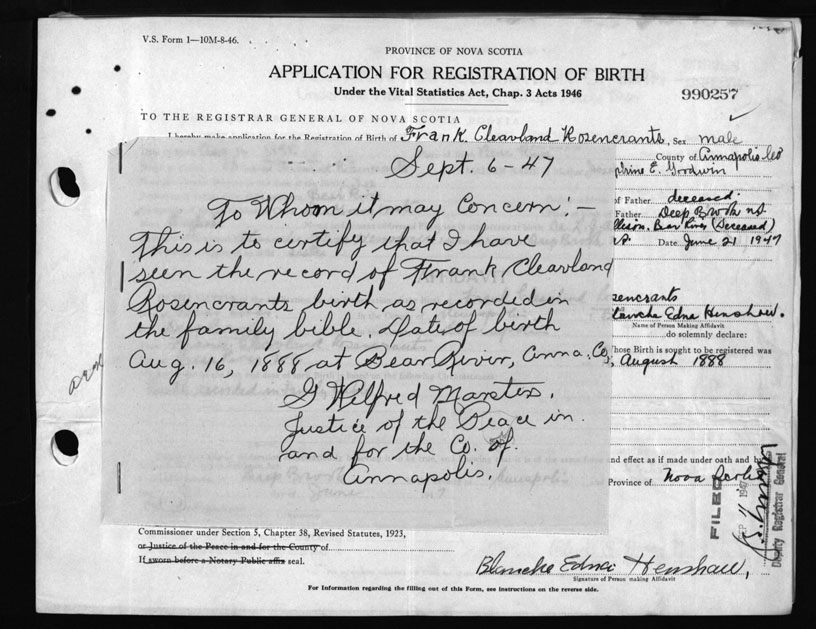 V.S. Form 1—10M-8-46.
PROVINCE OF NOVA SCOTIA
APPLICATION FOR REGISTRATION OF BIRTH
Under the Vital Statistics Act, Chap. 3 Acts 1946
990257
TO THE REGISTRAR GENERAL OF NOVA SCOTIA
I hereby make application for the Registration of Birth of Frank Cleavland Rosencrants, Sex male
County of Annapolis
E. Goodwin
of Father deceased
Father Deep Brook
Bear River (Deceased)
Date June 21 1947
Sept. 6-47
To Whom it may Concern:—
This is to certify that I have
seen the record of Frank Cleavland
Rosencrants birth as recorded in
the family bible. Date of birth
Aug. 16, 1888 at Bear River, Anna. Co,
G Wilfred Marsters.
Justice of the Peace in
and for the Co. of
Annapolis.
sencrants
lanche Edna Henshaw.
Name of Person Making Affidavit
do solemnly declare:
hose Birth is sought to be registered was
, August 1888
nd effect as if made under oath and
Province of Nova Scotia
FILED
SEP 11 1947
Deputy Registrar General
Commissioner under Section 5, Chapter 38, Revised Statutes, 1923,
or Justice of the Peace in and for the County of
If sworn before a Notary Public affix seal.
Blanche Edna Henshaw,
Signature of Person making Affidavit
For Information regarding the filling out of this Form, see instructions on the reverse side.